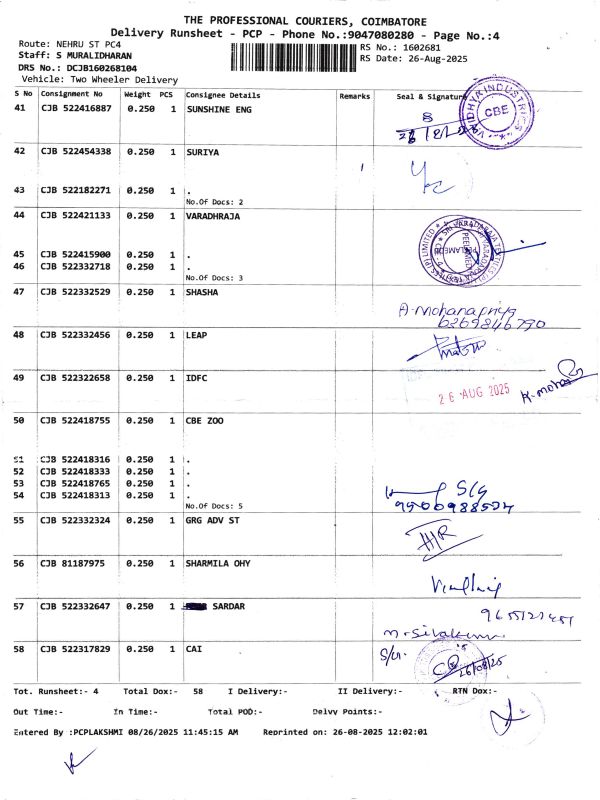 THE PROFESSIONAL COURIERS, COIMBATORE
Delivery Runsheet - PCP - Phone No.:9047080280 - Page No.:4
Route: NEHRU ST PC4
RS No.: 1602681
Staff: S MURALIDHARAN
RS Date: 26-Aug-2025
DRS No.: DCJB160268104
Vehicle: Two Wheeler Delivery
S No Consignment No Weight PCS Consignee Details Remarks Seal & Signature
41 CJB 522416887 0.250 1 SUNSHINE ENG
VIDHYA INDUSTRIES CBE
42 CJB 522454338 0.250 1 SURIYA
43 CJB 522182271 0.250 1 .
No.Of Docs: 2
44 CJB 522421133 0.250 1 VARADHRAJA
45 CJB 522415900 0.250 1 .
46 CJB 522332718 0.250 1 .
No.Of Docs: 3
47 CJB 522332529 0.250 1 SHASHA
A. Mohanapriya
6369846790
48 CJB 522332456 0.250 1 LEAP
49 CJB 522322658 0.250 1 IDFC
26 AUG 2025
K. mohan
50 CJB 522418755 0.250 1 CBE ZOO
51 CJB 522418316 0.250 1 .
52 CJB 522418333 0.250 1 .
53 CJB 522418765 0.250 1 .
54 CJB 522418313 0.250 1 .
No.Of Docs: 5
55 CJB 522332324 0.250 1 GRG ADV ST
56 CJB 81187975 0.250 1 SHARMILA OHY
57 CJB 522332647 0.250 1 SARDAR
58 CJB 522317829 0.250 1 CAI
26/08/25
Tot. Runsheet:- 4 Total Dox:- 58 I Delivery:- II Delivery:- RTN Dox:-
Out Time:- In Time:- Total POD:- Delvy Points:-
Entered By :PCPLAKSHMI 08/26/2025 11:45:15 AM Reprinted on: 26-08-2025 12:02:01